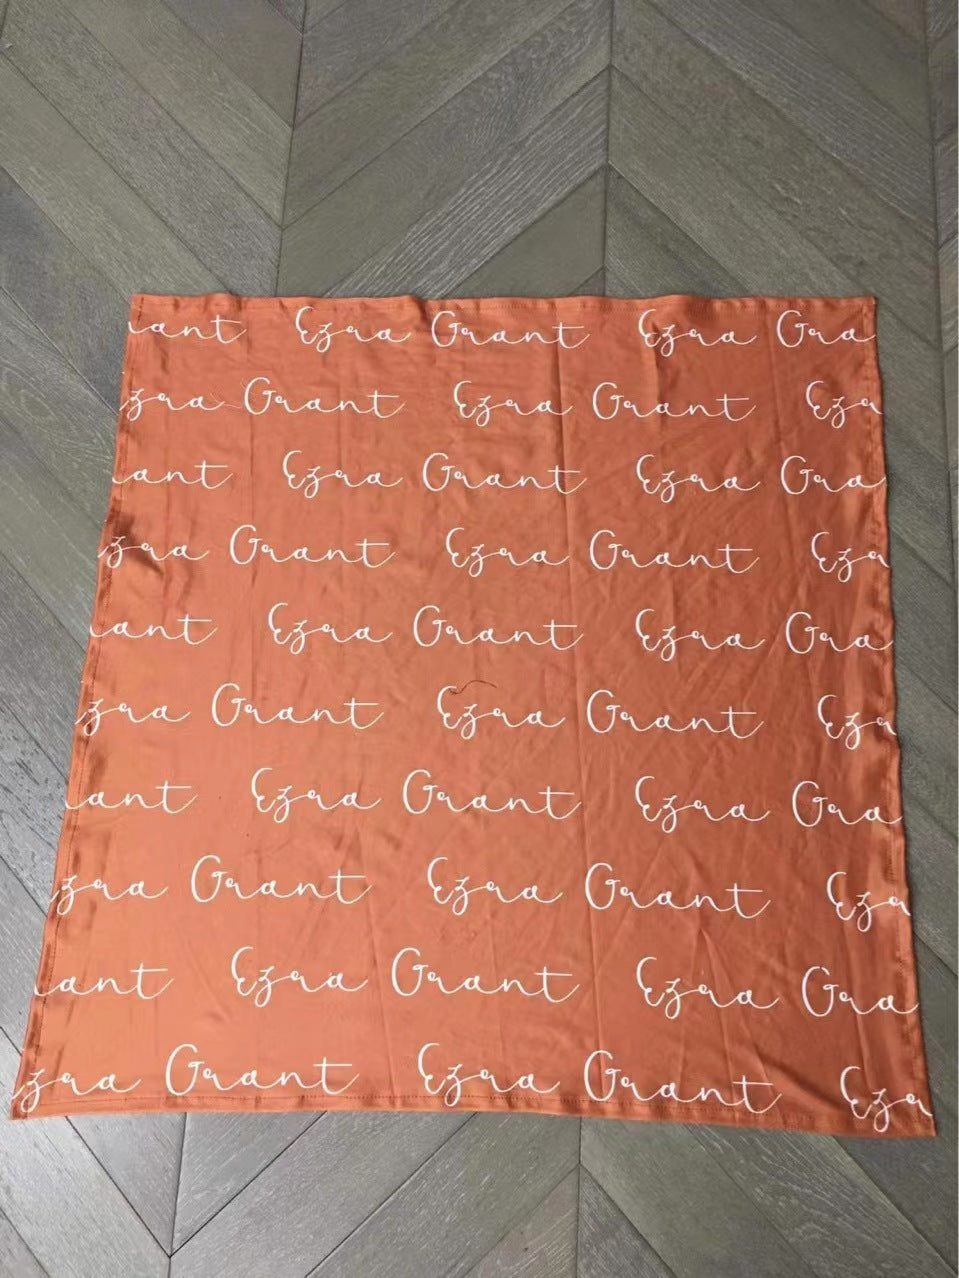 ant Ezra Grant Ezra Gra
zra Grant Ezra Grant Ezr
ant Ezra Grant Ezra Gra
zra Grant Ezra Grant Ezr
ant Ezra Grant Ezra Gra
zra Grant Ezra Grant Ezr
ant Ezra Grant Ezra Gra
zra Grant Ezra Grant Ezr
ant Ezra Grant Ezra Gra
zra Grant Ezra Grant Ezr